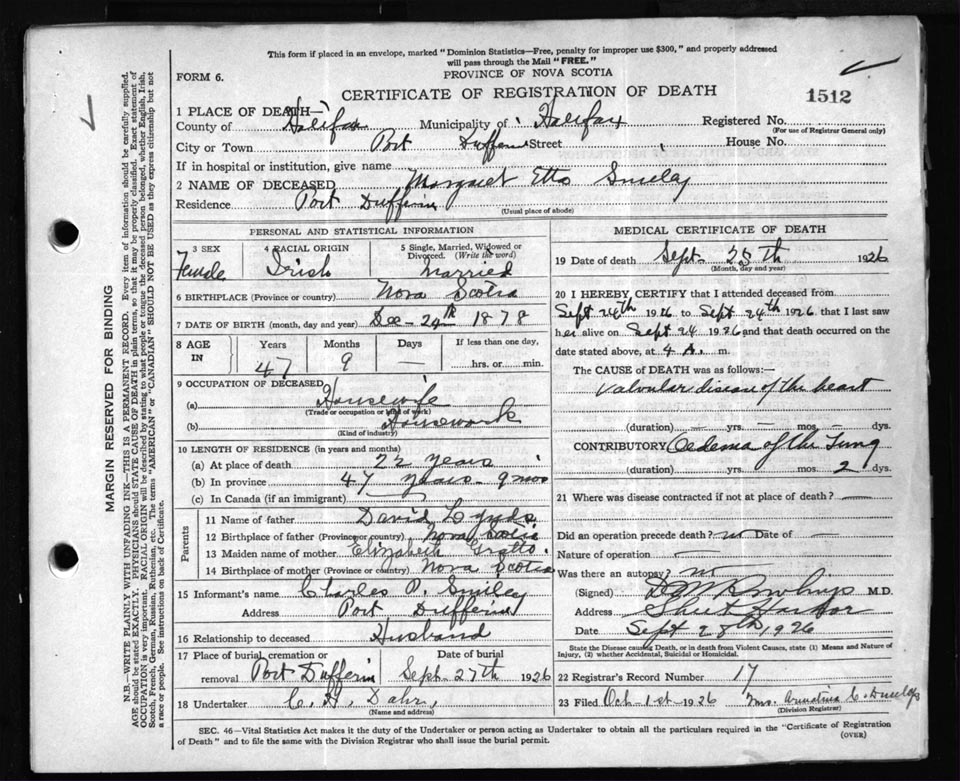 This form if placed in an envelope, marked "Dominion Statistics—Free, penalty for improper use $300," and properly addressed
will pass through the Mail "FREE."
FORM 6.
PROVINCE OF NOVA SCOTIA
CERTIFICATE OF REGISTRATION OF DEATH
1512
1 PLACE OF DEATH—
County of Halifax Municipality of Halifax Registered No.
(For use of Registrar General only)
City or Town Port Dufferin Street House No.
If in hospital or institution, give name
2 NAME OF DECEASED Margaret Etta Smiley
Residence Port Dufferin
(Usual place of abode)
PERSONAL AND STATISTICAL INFORMATION
3 SEX 4 RACIAL ORIGIN 5 Single, Married, Widowed or Divorced. (Write the word)
Female Irish Married
6 BIRTHPLACE (Province or country) Nova Scotia
7 DATE OF BIRTH (month, day and year) Dec - 29th 1878
8 AGE IN Years Months Days If less than one day,
47 9 — hrs. or min.
9 OCCUPATION OF DECEASED
(a) Housewife
(Trade or occupation or kind of work)
(b) Housework
(Kind of industry)
10 LENGTH OF RESIDENCE (in years and months)
(a) At place of death 22 years
(b) In province 47 years - 9 mos
(c) In Canada (if an immigrant)
Parents
11 Name of father David
12 Birthplace of father (Province or country) Nova Scotia
13 Maiden name of mother Elizabeth
14 Birthplace of mother (Province or country) Nova Scotia
15 Informant's name Charles P. Smiley
Address Port Dufferin
16 Relationship to deceased Husband
17 Place of burial, cremation or removal Date of burial
Port Dufferin Sept - 27th 1926
18 Undertaker C. H.
(Name and address)
MEDICAL CERTIFICATE OF DEATH
19 Date of death Sept. 25th 1926
(Month, day and year)
20 I HEREBY CERTIFY that I attended deceased from
Sept 24th 1926 to Sept 24th 1926 that I last saw
her alive on Sept 24 1926 and that death occurred on the
date stated above, at 4 A. m.
The CAUSE of DEATH was as follows:—
Valvular disease of the heart
(duration) — yrs. — mos. — dys.
CONTRIBUTORY Oedema of the Lung
(duration) — yrs. — mos. 2 dys.
21 Where was disease contracted if not at place of death? —
Did an operation precede death? no Date of —
Nature of operation —
Was there an autopsy? no
(Signed) M.D.
Address Sheet Harbor
Date Sept 28th 1926
State the Disease causing Death, or in death from Violent Causes, state (1) Means and Nature of
Injury, (2) whether Accidental, Suicidal or Homicidal.
22 Registrar's Record Number 17
23 Filed Oct 1st 1926 Mrs. C. Dunlap
(Division Registrar)
SEC. 46—Vital Statistics Act makes it the duty of the Undertaker or person acting as Undertaker to obtain all the particulars required in the "Certificate of Registration
of Death" and to file the same with the Division Registrar who shall issue the burial permit. (OVER)
MARGIN RESERVED FOR BINDING
N.B.—WRITE PLAINLY WITH UNFADING INK—THIS IS A PERMANENT RECORD. Every item of information should be carefully supplied.
AGE should be stated EXACTLY. PHYSICIANS should STATE CAUSE OF DEATH in plain terms, so that it may be properly classified. Exact statement of
OCCUPATION is very important. RACIAL ORIGIN will be described by stating to what people or tongue the deceased person belonged, whether English, Irish,
Scotch, French, German, Russian, Ruthenian, etc. The terms "AMERICAN" or "CANADIAN" SHOULD NOT BE USED as they express citizenship but not
a race or people. See instructions on back of Certificate.